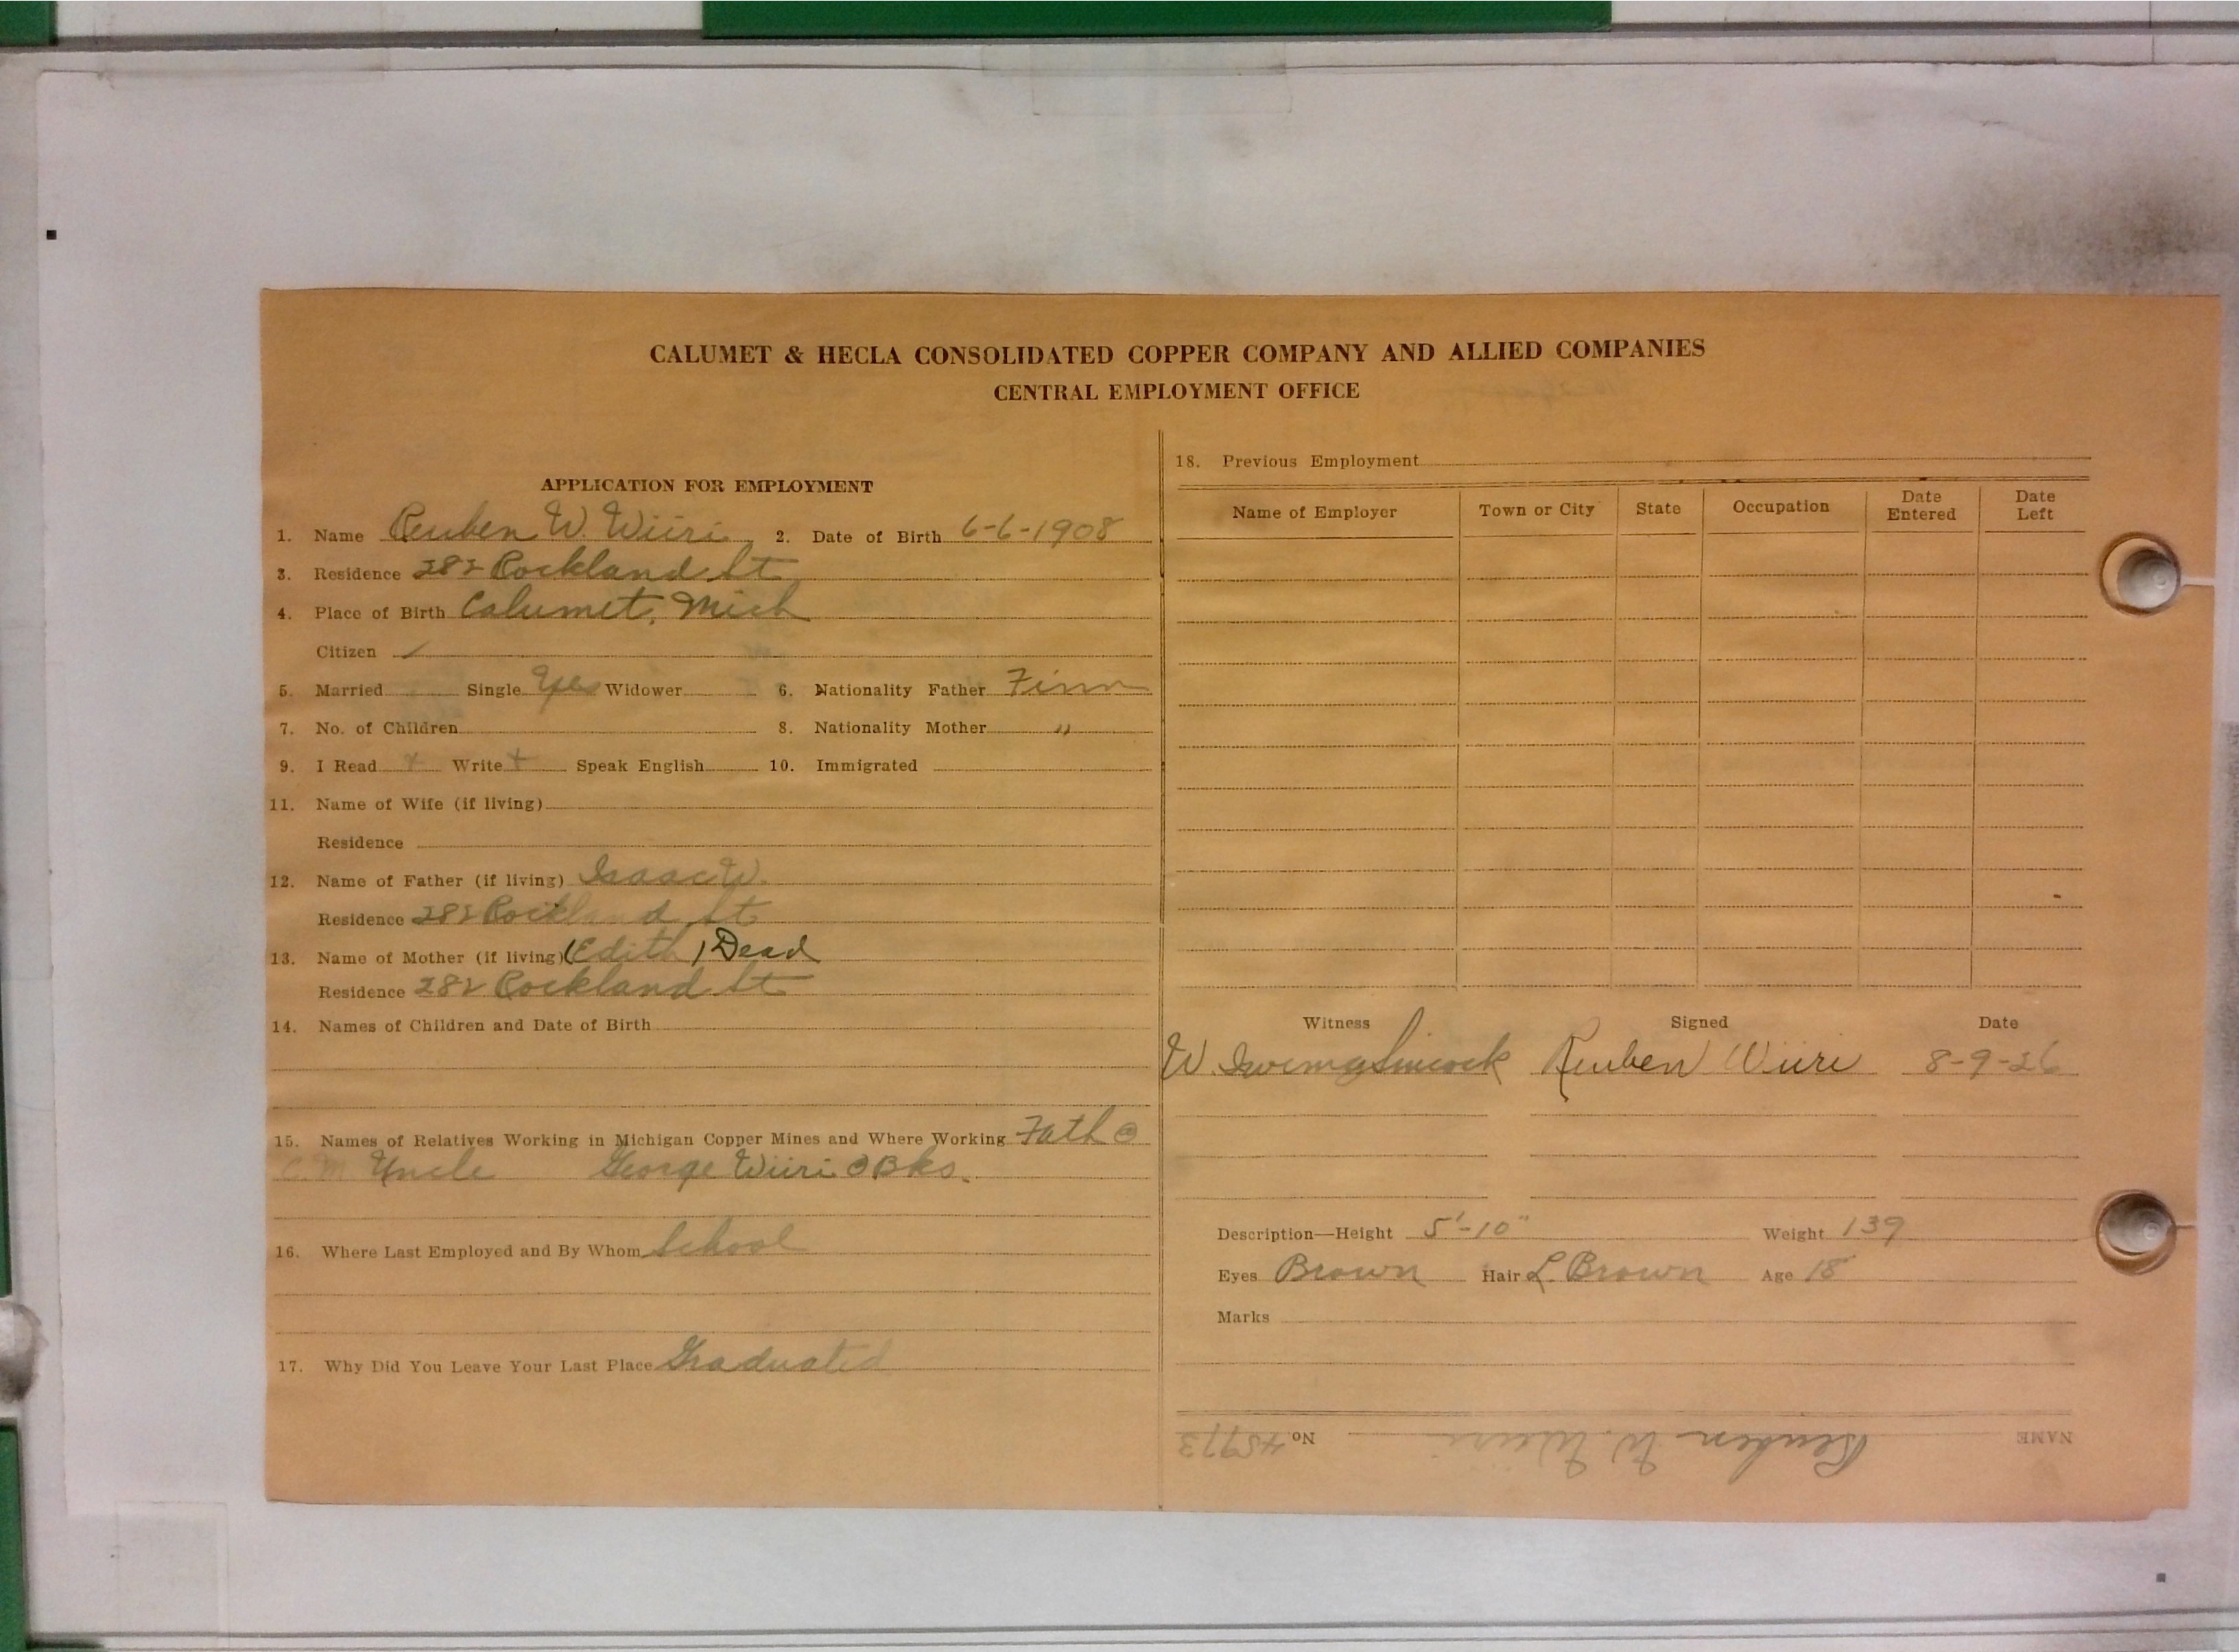 CALUMET & HECLA CONSOLIDATED COPPER COMPANY AND ALLIED COMPANIES
CENTRAL EMPLOYMENT OFFICE
APPLICATION FOR EMPLOYMENT
1. Name Reuben W. Wiiri 2. Date of Birth 6-6-1908
3. Residence 282 Rockland St
4. Place of Birth Calumet, Mich
Citizen ✓
5. Married Single Yes Widower 6. Nationality Father Finn
7. No. of Children 8. Nationality Mother "
9. I Read + Write + Speak English 10. Immigrated
11. Name of Wife (if living)
Residence
12. Name of Father (if living) Isaac W.
Residence 282 Rockland St
13. Name of Mother (if living) (Edith) Dead
Residence 282 Rockland St
14. Names of Children and Date of Birth
15. Names of Relatives Working in Michigan Copper Mines and Where Working Fath @
C. M. Uncle George Wiiri @ Bks.
16. Where Last Employed and By Whom School
17. Why Did You Leave Your Last Place Graduated
18. Previous Employment
Name of Employer Town or City State Occupation Date Entered Date Left
Witness Signed Date
W. Reuben Wiiri 8-9-26
Description—Height 5'-10" Weight 139
Eyes Brown Hair L. Brown Age 18
Marks
NAME Reuben W. Wiiri No. 45773